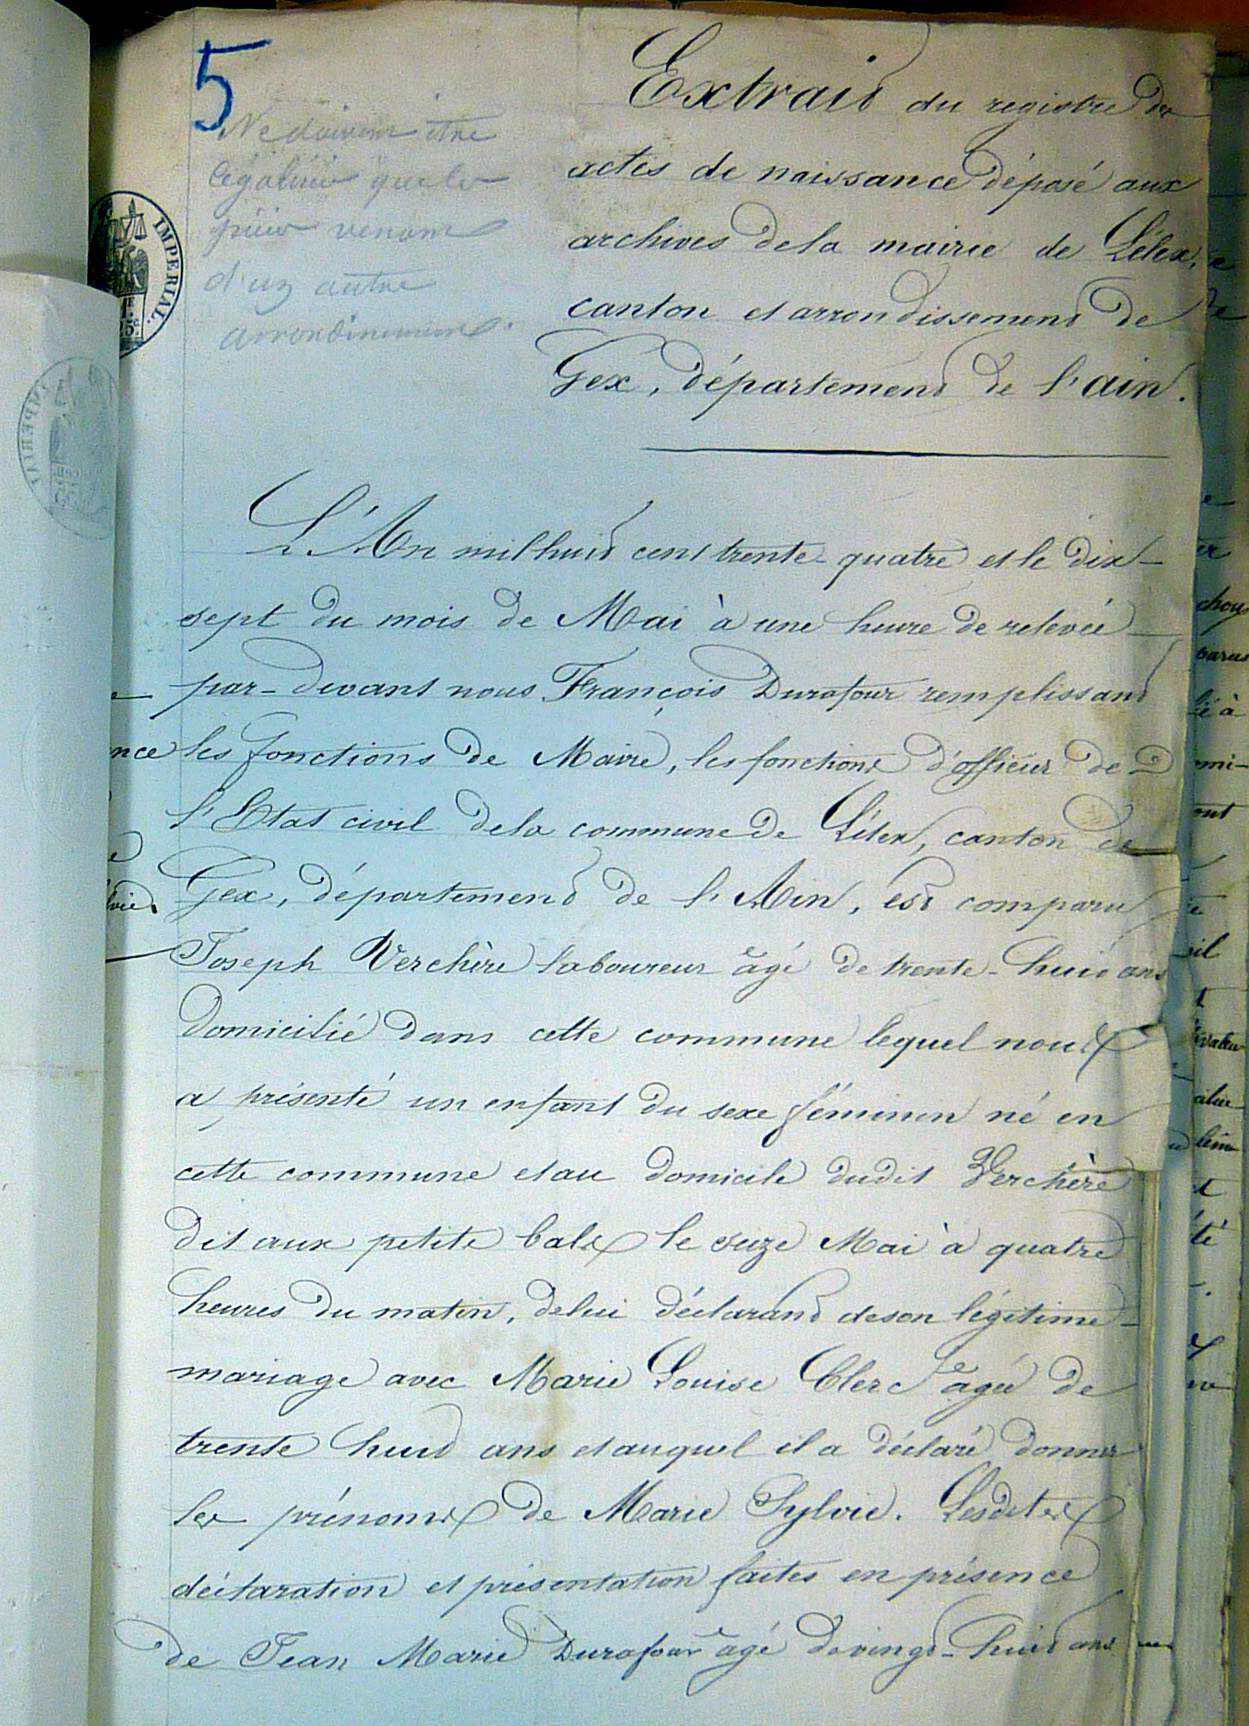 5
Ne doivent être
légalisé que les
pièces venant
d'un autre
arrondissement.
IMPERIAL.
Extrait du registre des
actes de naissance déposé aux
archives de la mairie de Lélex,
canton et arrondissement de
Gex, département de l'ain.
L'An mil huit cent trente-quatre et le dix-
sept du mois de Mai à une heure de relevée
par-devant nous François Durafour remplissant
les fonctions de Maire, les fonctions d'officier de
l'Etat civil de la commune de Lélex, canton de
Gex, département de l'Ain, est comparu
Joseph Verchère laboureur âgé de trente-huit ans
domicilié dans cette commune lequel nous
a présenté un enfant du sexe féminin né en
cette commune et au domicile dudit Verchère
dit aux petite bals le seize Mai à quatre
heures du matin, de lui déclarant de son légitime
mariage avec Marie Louise Clerc âgée de
trente huit ans et auquel il a déclaré donner
les prénoms de Marie Sylvie. Lesdites
déclaration et présentation faites en présence
de Jean Marie Durafour âgé de vingt-huit ans